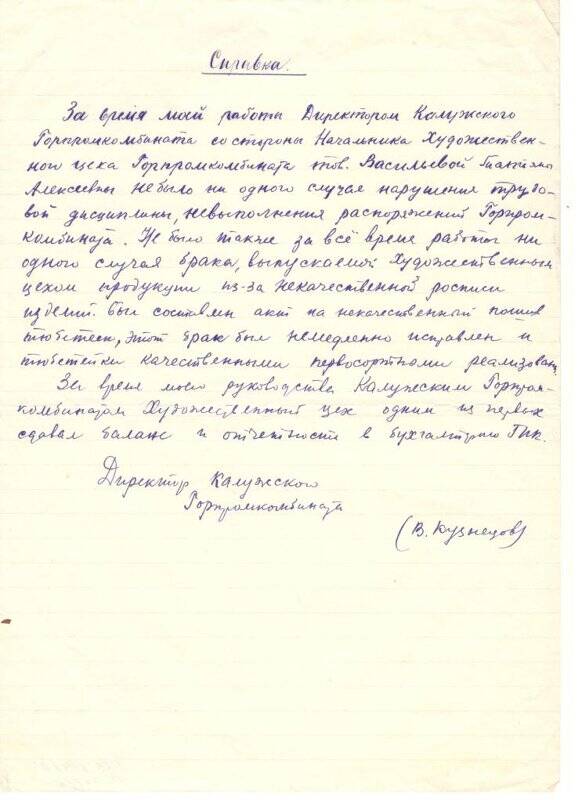 Справка.
За время моей работы Директором Калужского
Горпромкомбината со стороны Начальника Художествен-
ного цеха Горпромкомбината тов. Васильевой Татьяны
Алексеевны не было ни одного случая нарушения трудо-
вой дисциплины, невыполнения распоряжений Горпром-
комбината. Не было также за всё время работы ни
одного случая брака, выпускаемой Художественным
цехом продукции из-за некачественной росписи
изделий. Был составлен акт на некачественный пошив
тюбетеек, этот брак был немедленно исправлен и
тюбетейки качественными первосортными реализованы
За время моего руководства Калужским Горпром-
комбинатом Художественный цех одним из первых
сдавал баланс и отчетность в бухгалтерию ГПК.
Директор Калужского
Горпромкомбината
(В. Кузнецов)